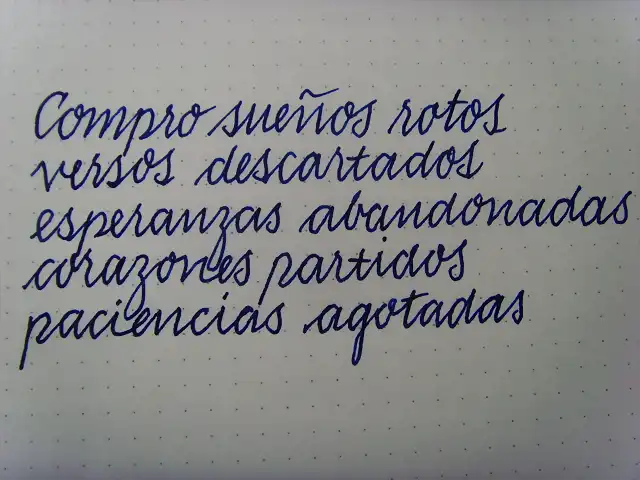 Compro sueños rotos
versos descartados
esperanzas abandonadas
corazones partidos
paciencias agotadas